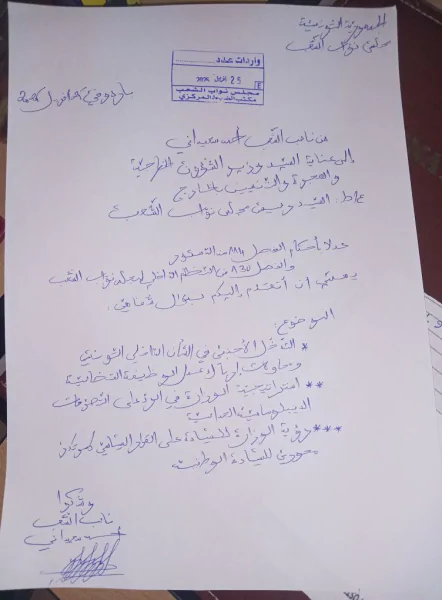 الجمهورية التونسية
مجلس نواب الشعب
واردات عدد
25
مجلس نواب الشعب
مكتب الضبط المركزي
باردو في
من نائب الشعب أحمد سعيداني
إلى عناية السيد وزير الشؤون الخارجية
والهجرة والتونسيين بالخارج
ع/ط السيد رئيس مجلس نواب الشعب
عملا بأحكام الفصل 114 من الدستور
والفصل 130 من النظام الداخلي لمجلس نواب الشعب
يهمني أن أتقدم إليكم بسؤال شفاهي.
الموضوع:
* التدخل الأجنبي في الشأن الداخلي التونسي
ومحاولات إرباك عمل الوظيفة القضائية
** استراتيجية الوزارة في الرد على التصرفات
الديبلوماسية العدائية
*** رؤية الوزارة للسيادة على القرار السياسي كمرتكز
محوري للسيادة الوطنية
وشكرا
نائب الشعب
أحمد سعيداني